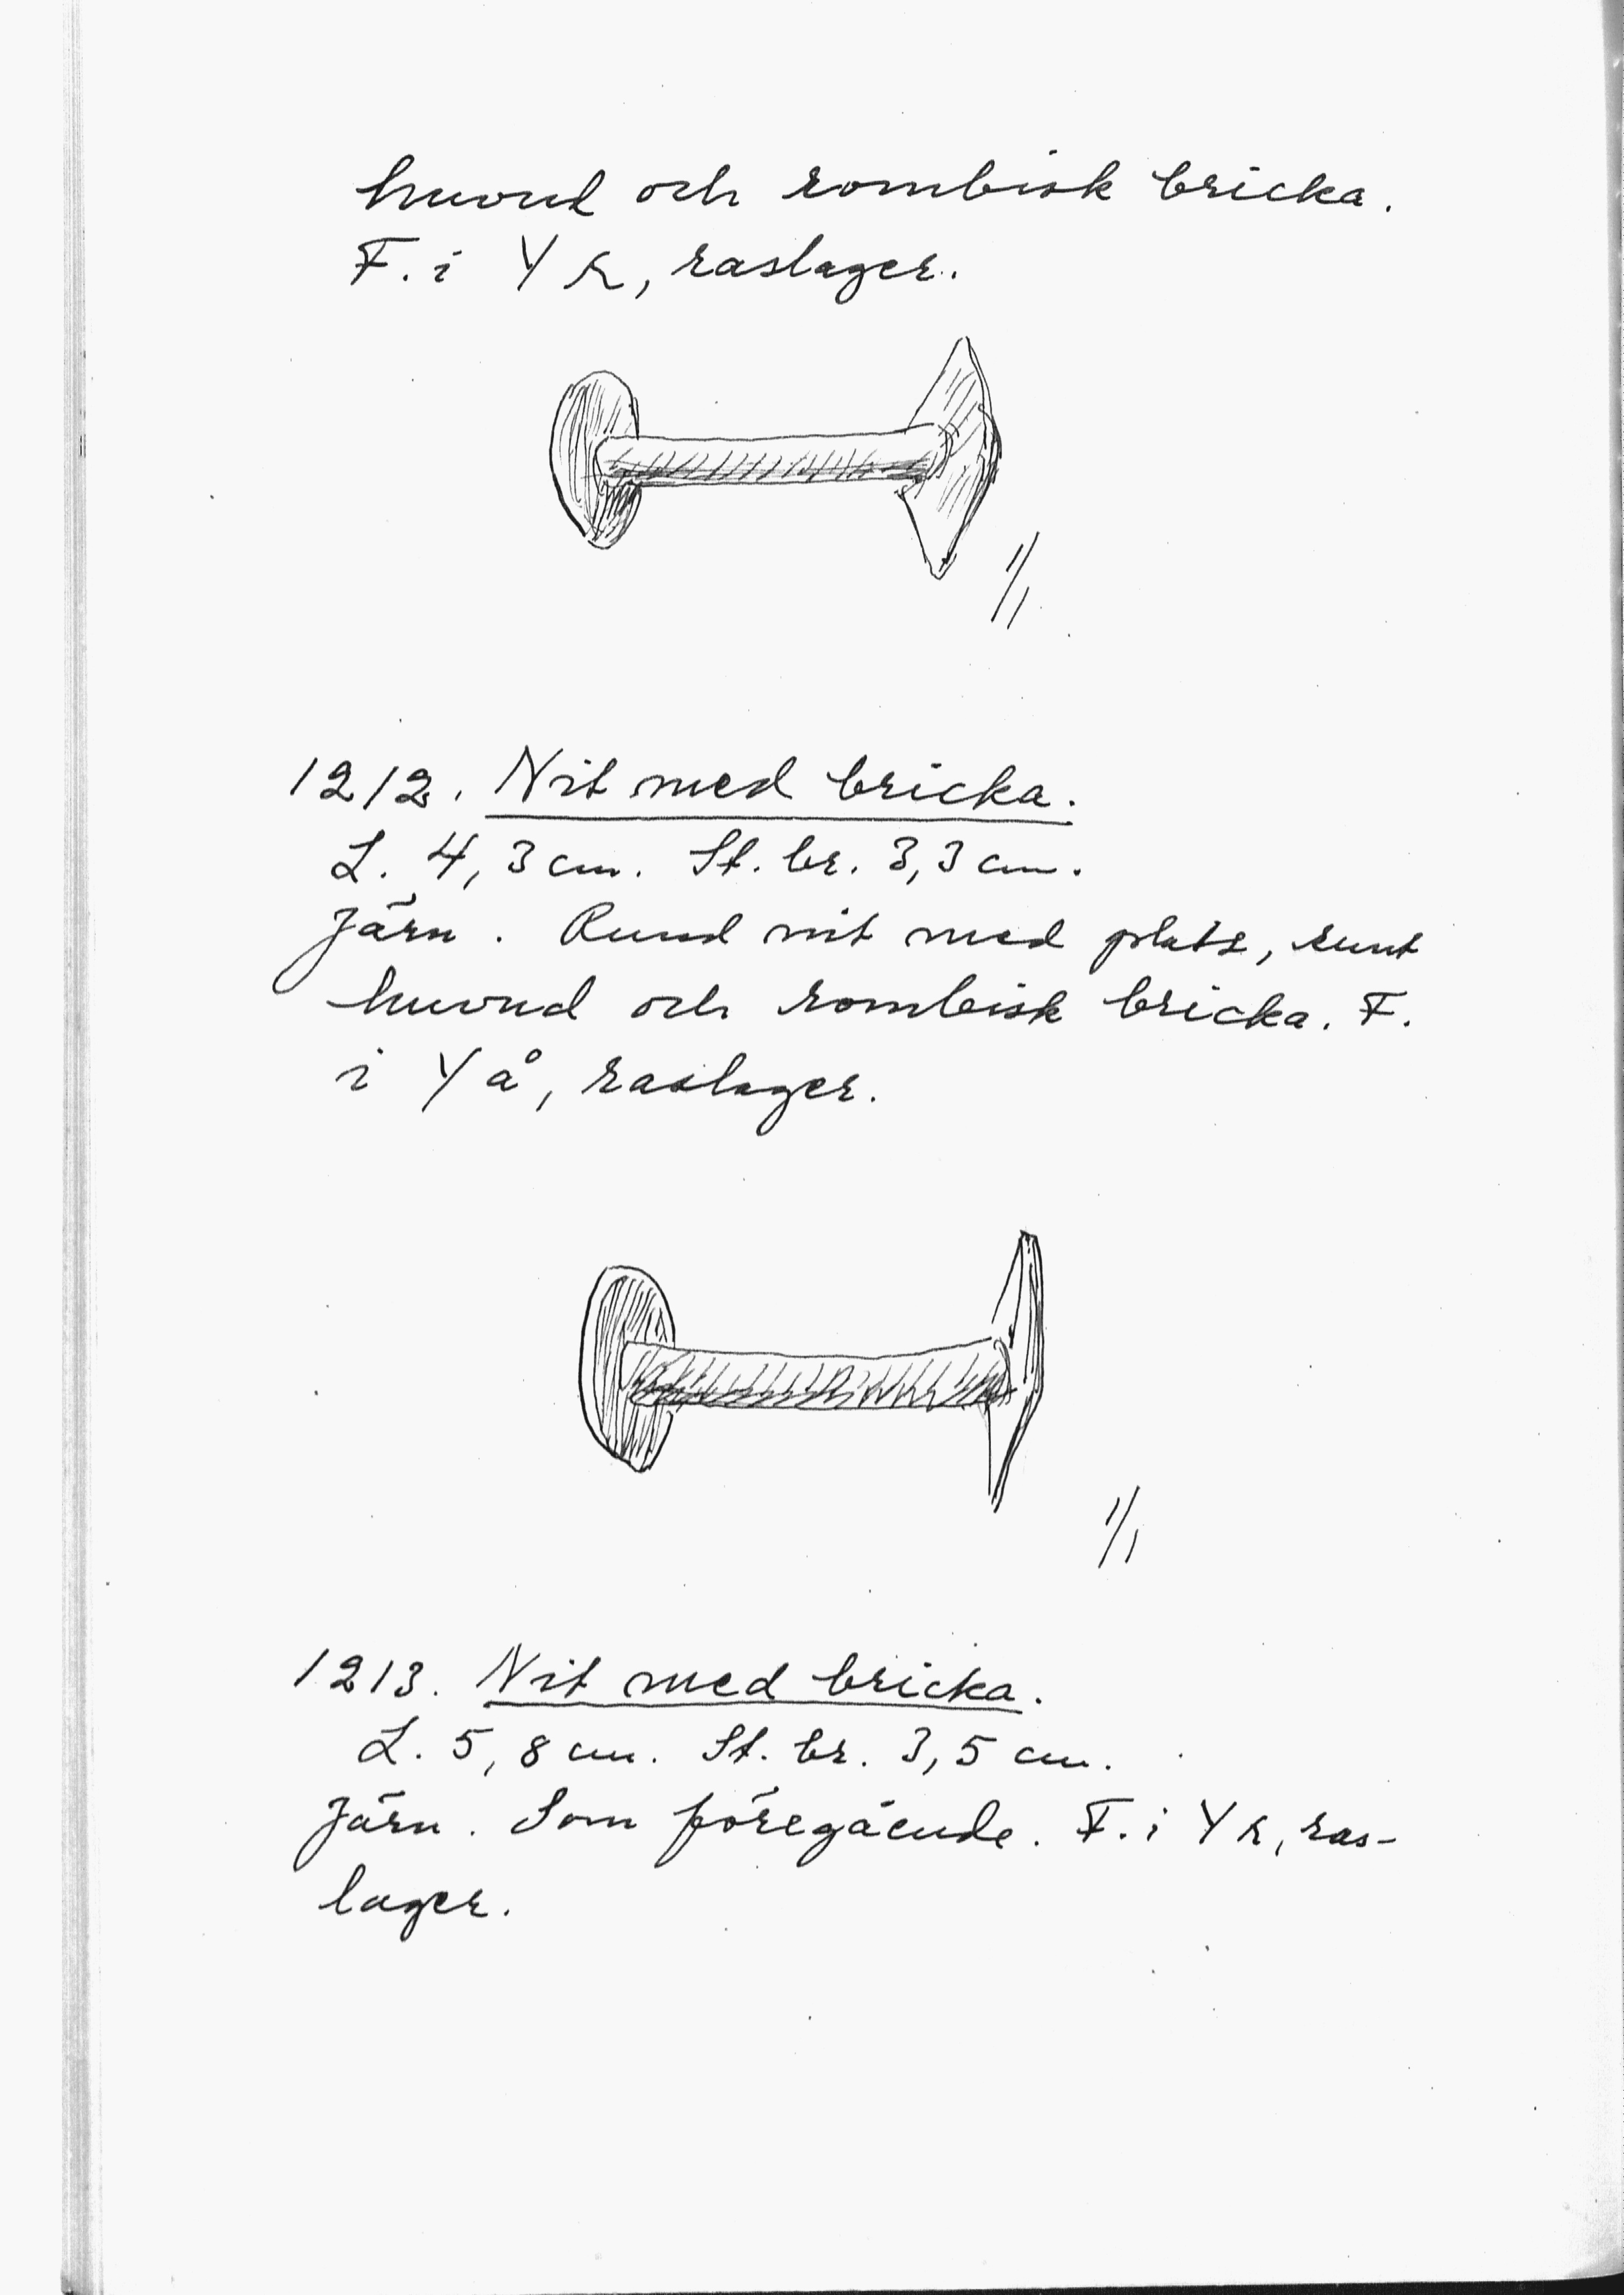 huvud och rombisk bricka.
F. i Y R, raslager.
1/1
1212. Nit med bricka.
L. 4,3 cm. St. br. 3,3 cm.
Järn. Rund nit med platt, runt
huvud och rombisk bricka. F.
i Y å, raslager.
1/1
1213. Nit med bricka.
L. 5,8 cm. St. br. 3,5 cm.
Järn. Som föregående. F. i Y R, ras-
lager.